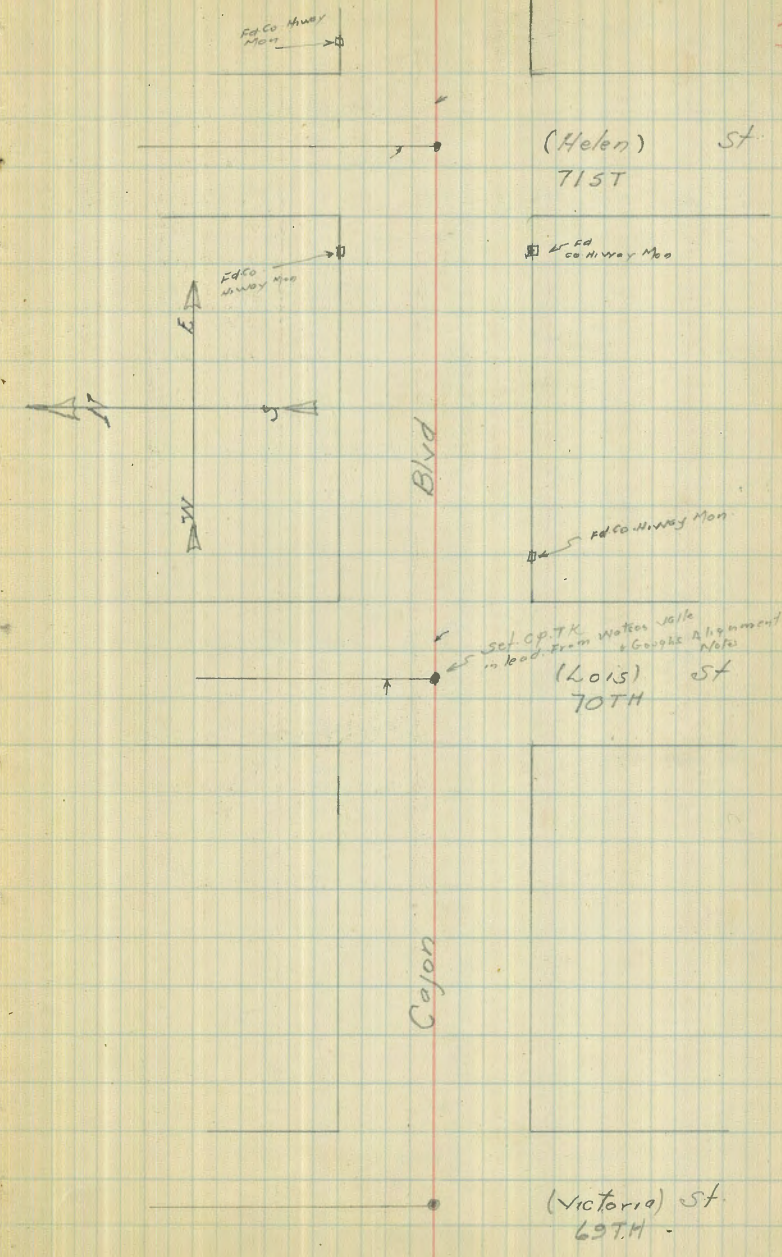 Fd. Co. Hiway
Mon
(Helen) St
71ST
Fd
Co Hiway Mon
Fd Co
Hiway Mon
E
N
S
W
Blvd
Fd. Co. Hiway Mon
Set Cp. TK
in lead. From Watson Valle
+ Goughs Alignment
Notes
(Lois) St
70TH
Cajon
(Victoria) St.
69TH